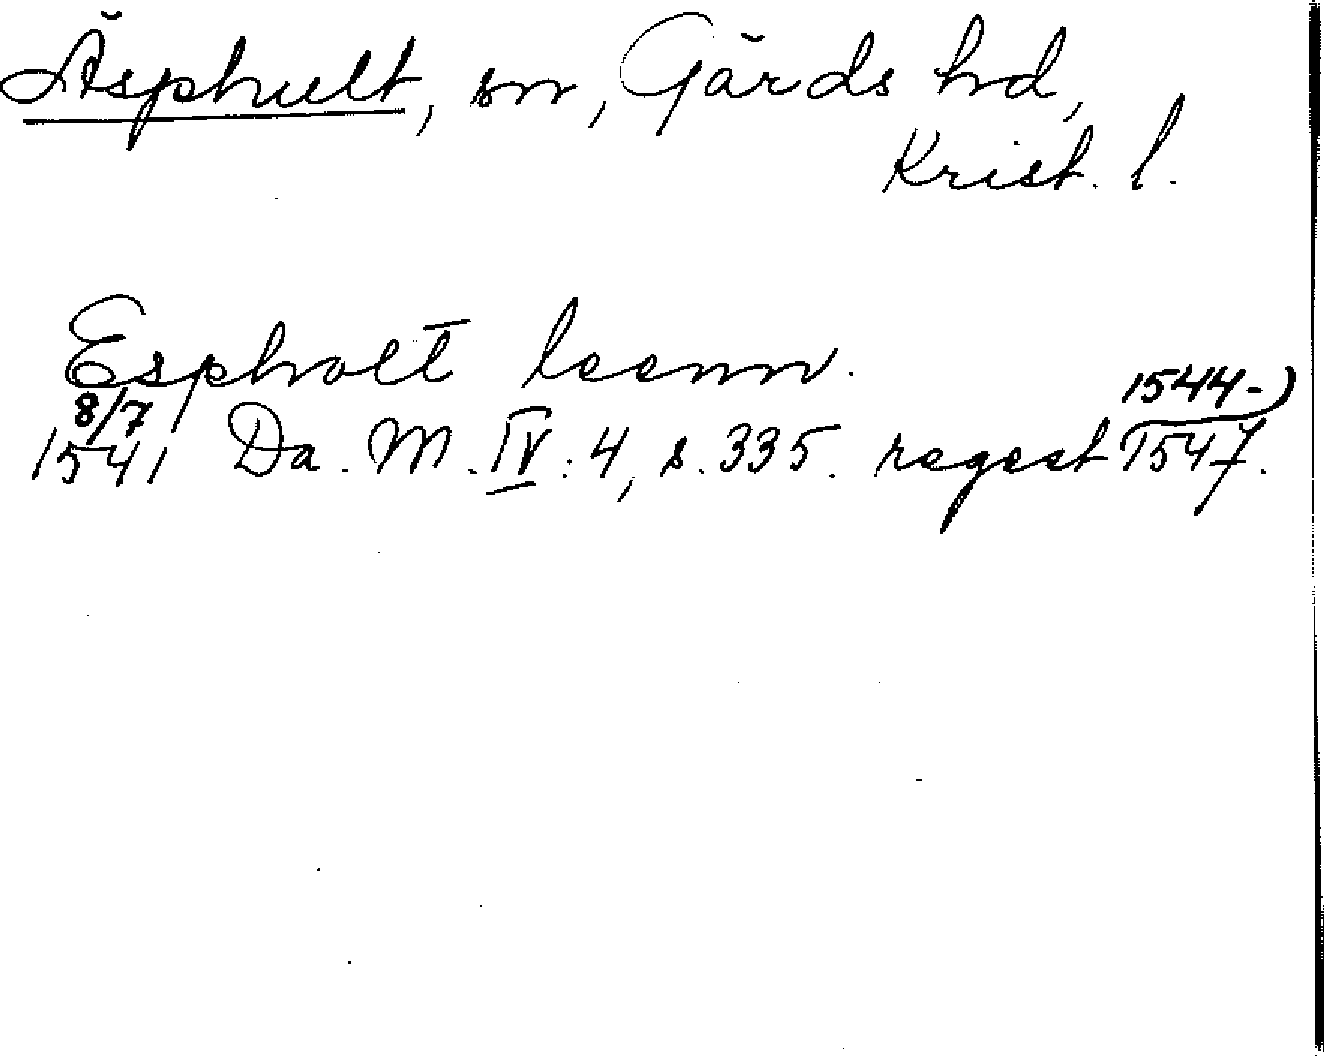 Äsphult, sn, Gärds hd,
Krist. l.
Espholt leenn.
8/7 1541 Da. M. IV: 4, s. 335. regest 1544-)
1547.